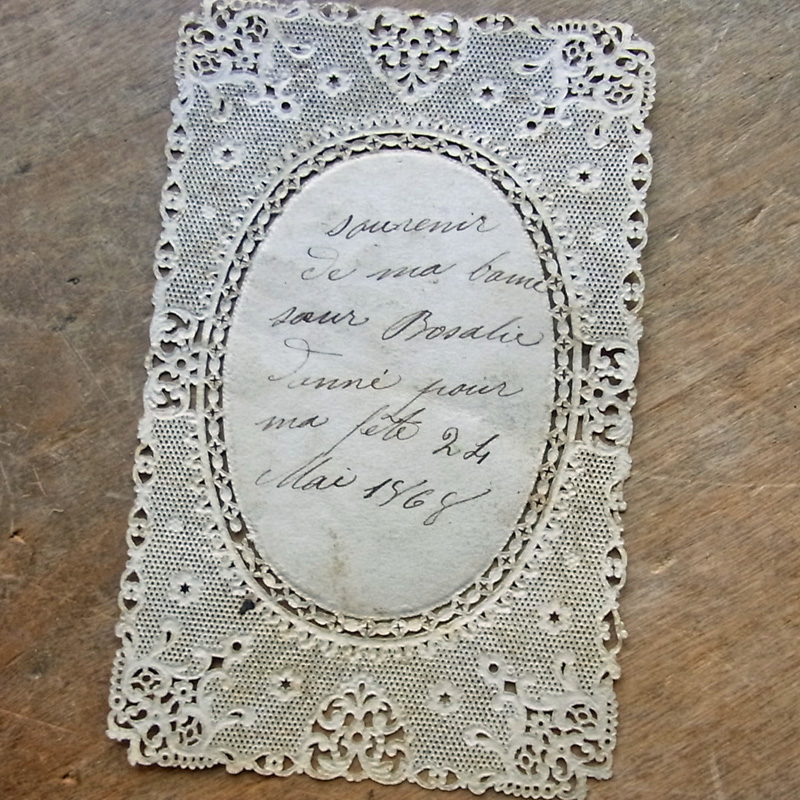 souvenir
de ma bonne
sœur Rosalie
donné pour
ma fête 24
Mai 1868